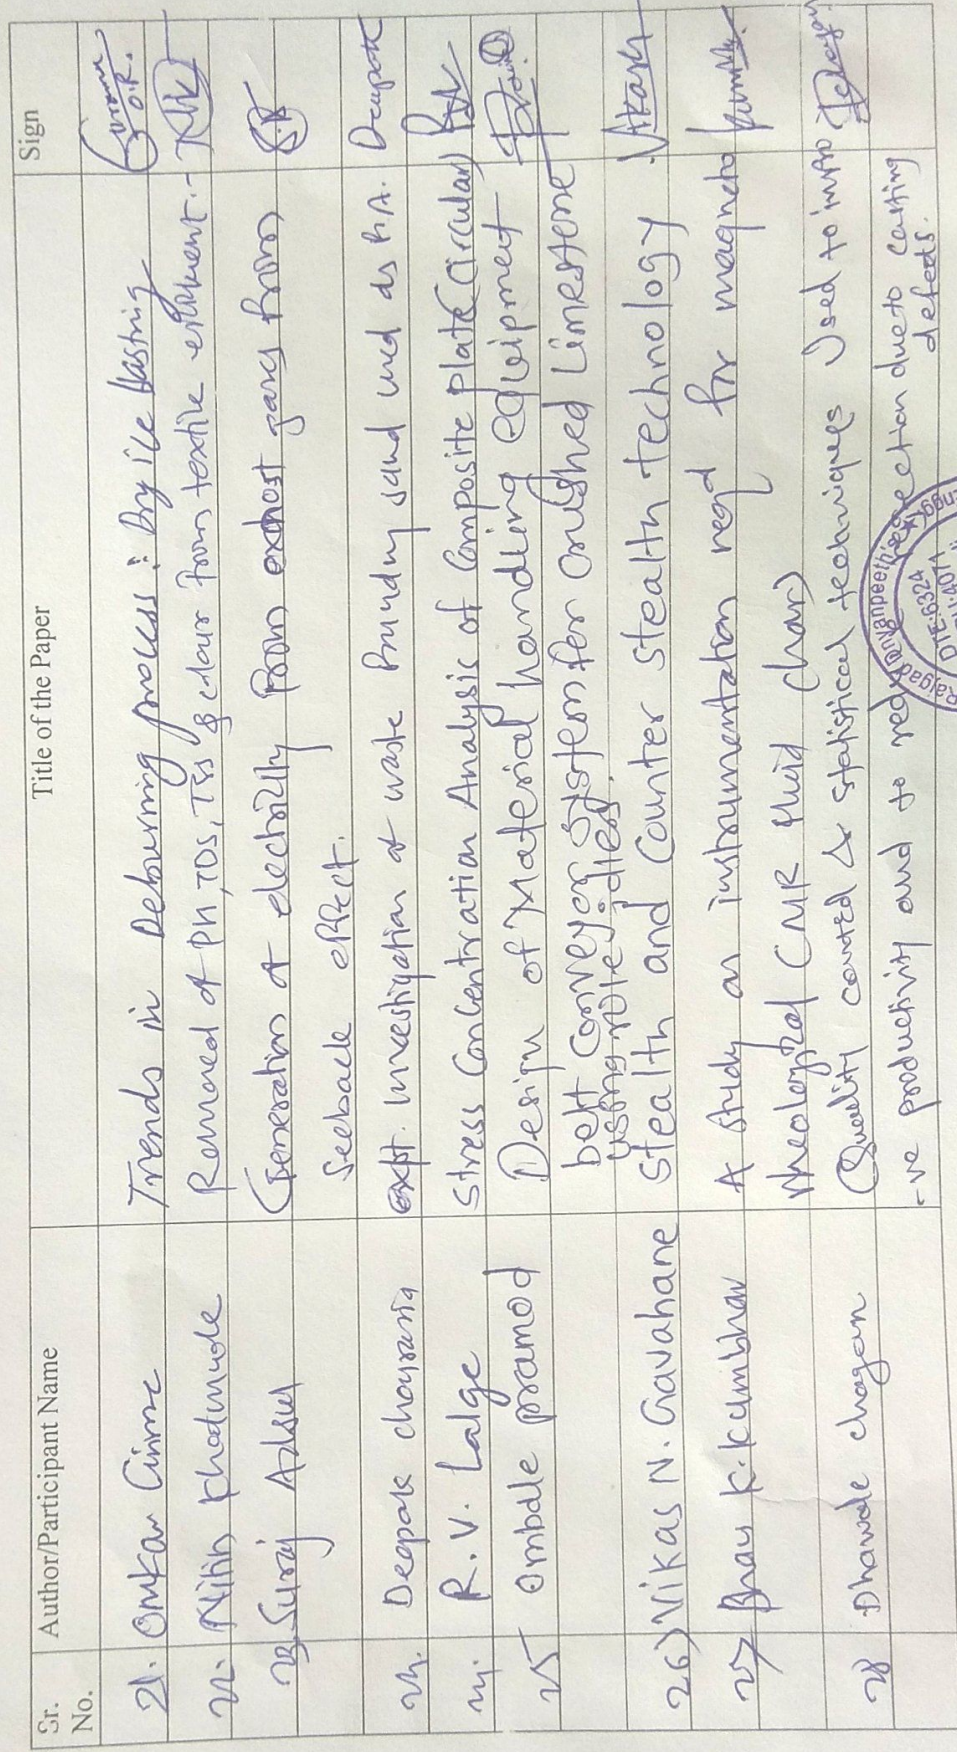 Sr. No. Author/Participant Name Title of the Paper Sign
21. Omkar Trends in Deburring process : Dry ice blasting
22. Nitin Khatmode Removed of PH, TDS, TSS & colour from textile effluent.
23. Suraj Generation of electricity from exhost gases from
Seeback effect.
24. Deepak chourasia expt. investigation of waste foundry sand used as F.A. Deepak
24. R. V. Lalge Stress Concentration Analysis of Composite plate (Circular)
25 Ombale pramod Design of Material handling equipment
belt conveyor system for crushed Limestone
using rolle idler.
26) Vikas N. Gavahane stealth and Counter stealth technology. Vikash
27) Bhau K. Kumbhar A study on instrumentation reqd for magneto
rheological (MR fluid char)
28 Dhawale chagan Quality control & statistical techniques Used to impro
-ve productivity and to rejection due to casting
defects.
Rajgad Dnyanpeeth's
DTE:6324